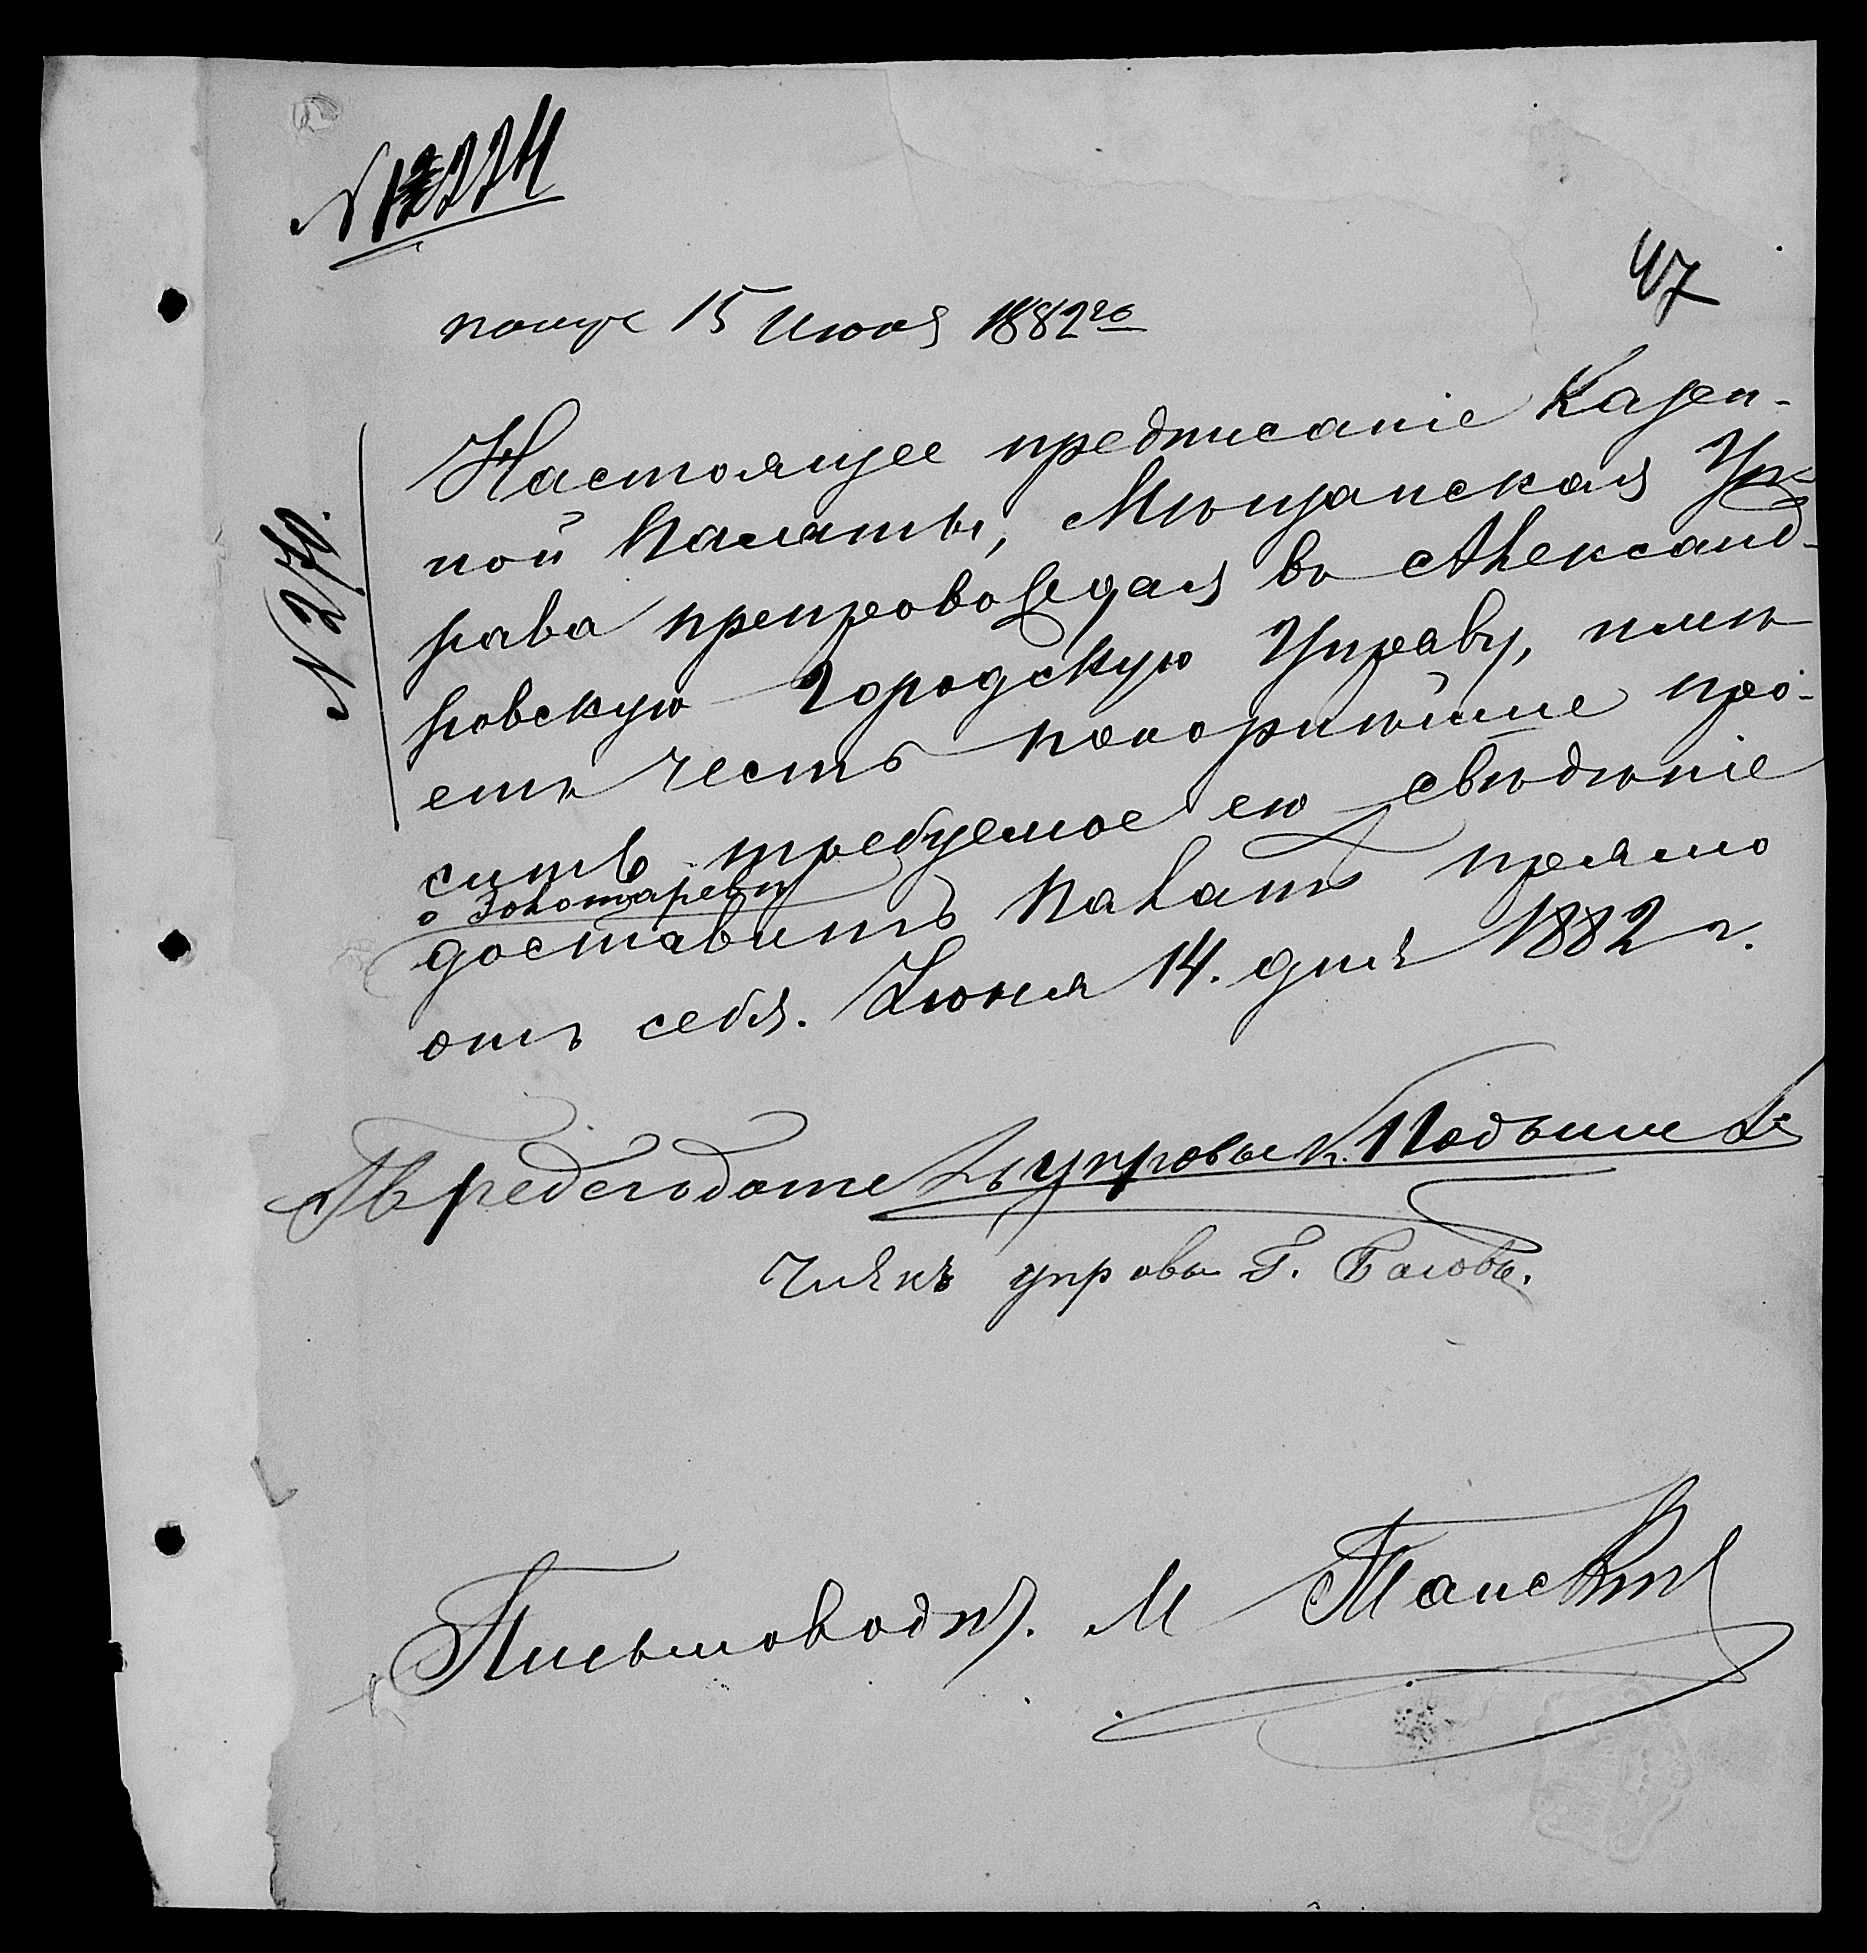 № 1224
47
получ 15 Июня 1882 го
№ 270.
Настоящее предписаніе Казен-
ной Палаты, Мѣщанская Уп-
рава препровождая въ Александ-
ровскую Городскую Управу, имѣ-
етъ честь покорнѣйше про-
сить требуемое ею свѣдѣніе
о Золотаревѣ
доставить Палатѣ прямо
отъ себя. Іюня 14. дня 1882 г.
Предсѣдатель управы К.
Членъ управы Г.
Письмоводит. М